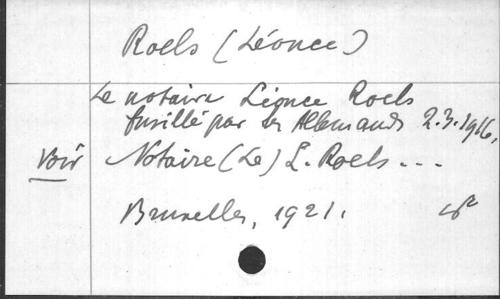 Roels (Léonce)
Le notaire Léonce Roels
fusillé par les Allemands 2.3.1916,
Voir Notaire (Le) L. Roels ...
Bruxelles, 1921.